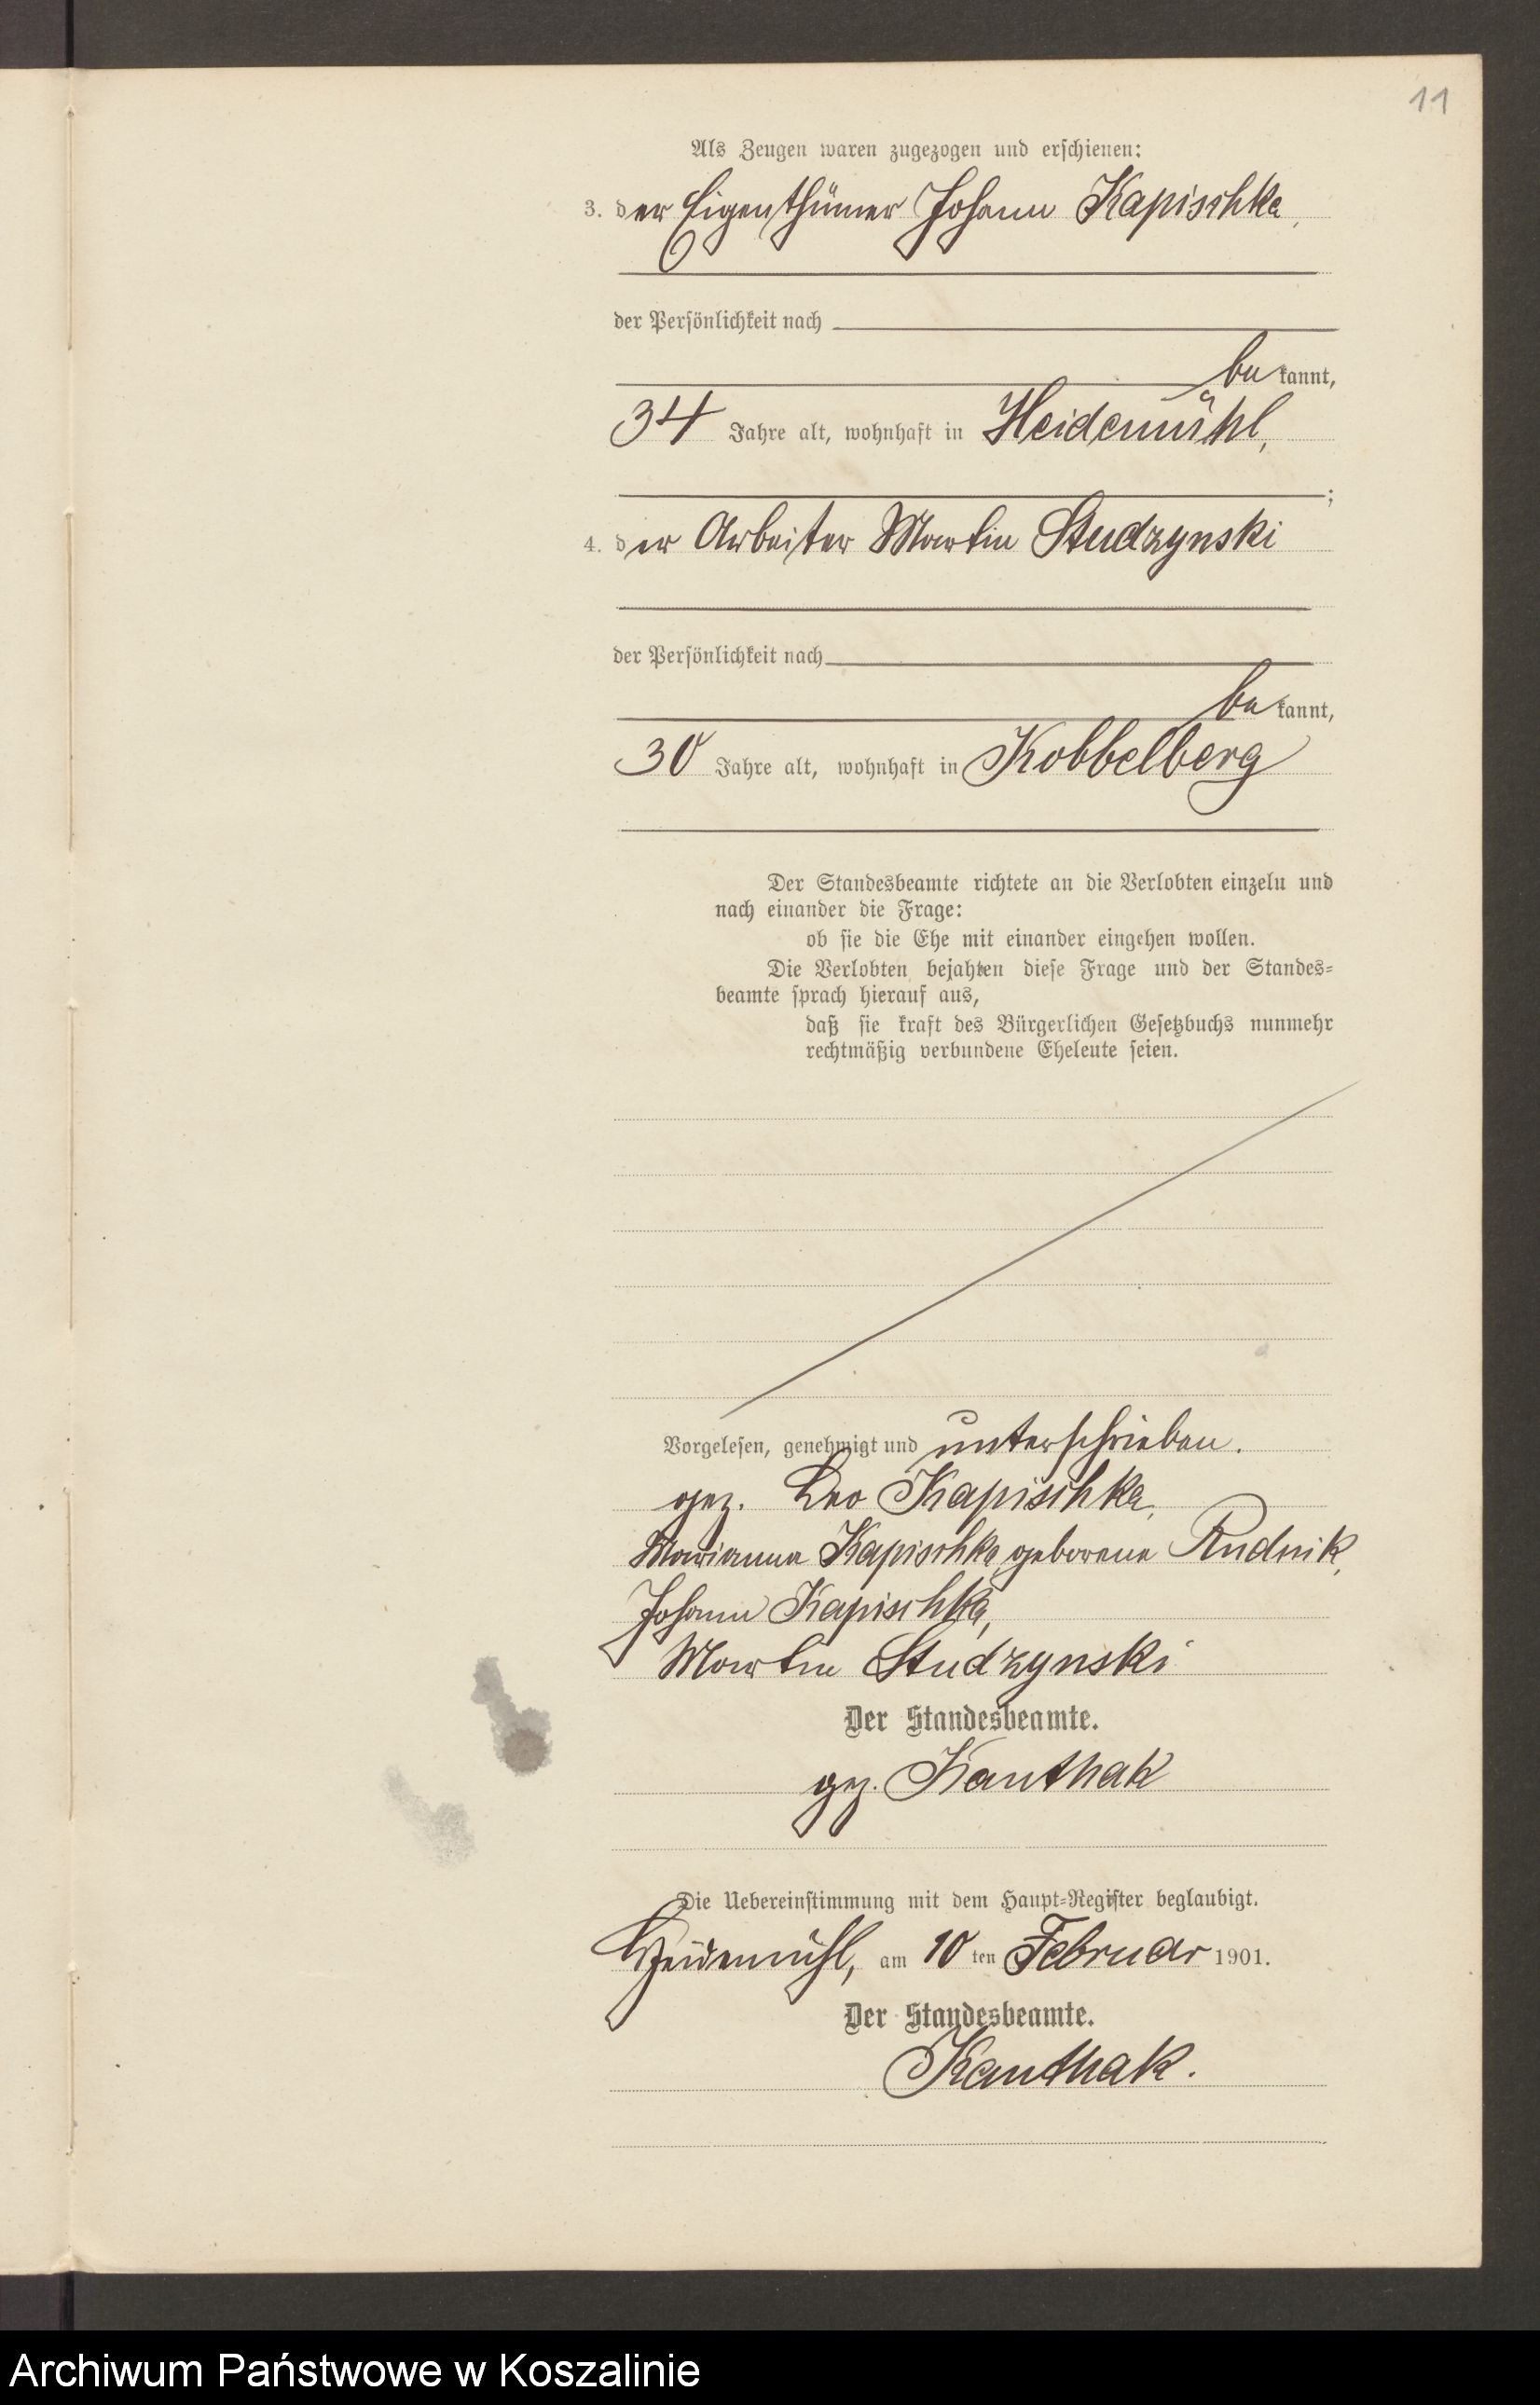 11
Als Zeugen waren zugezogen und erschienen:
3. der Eigenthümer Johann Kapischka,
der Persönlichkeit nach
be kannt,
34 Jahre alt, wohnhaft in Heidemühl,
;
4. der Arbeiter Martin Studzynski
der Persönlichkeit nach
be kannt,
30 Jahre alt, wohnhaft in Kobbelberg
Der Standesbeamte richtete an die Verlobten einzeln und
nach einander die Frage:
ob sie die Ehe mit einander eingehen wollen.
Die Verlobten bejahten diese Frage und der Standes-
beamte sprach hierauf aus,
daß sie kraft des Bürgerlichen Gesetzbuchs nunmehr
rechtmäßig verbundene Eheleute seien.
Vorgelesen, genehmigt und unterschrieben.
gez. Leo Kapischka,
Marianna Kapischka geborene Rudnik,
Johann Kapischka,
Martin Studzynski
Der Standesbeamte.
gez. Kanthak
Die Uebereinstimmung mit dem Haupt-Register beglaubigt.
Heidemühl, am 10 ten Februar 1901.
Der Standesbeamte.
Kanthak.
Archiwum Państwowe w Koszalinie